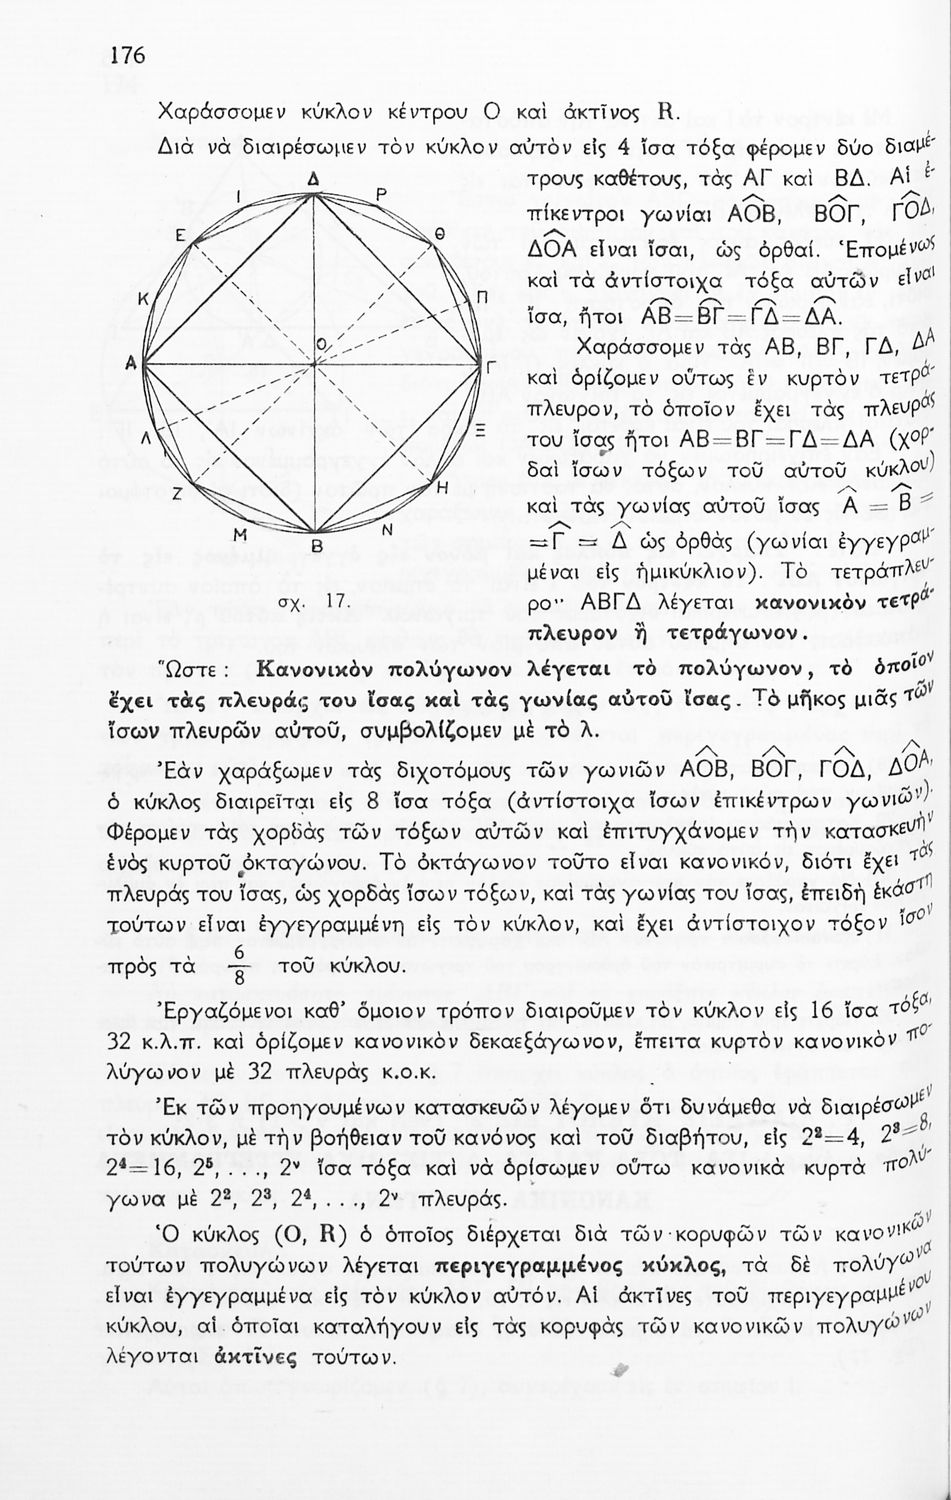 176
Χαράσσομεν κύκλον κέντρου Ο καὶ ἀκτῖνος R.
Διὰ νὰ διαιρέσωμεν τὸν κύκλον αὐτὸν εἰς 4 ἴσα τόξα φέρομεν δύο διαμέ-
τρους καθέτους, τὰς ΑΓ καὶ ΒΔ. Αἱ ἐ-
πίκεντροι γωνίαι ΑΟΒ, ΒΟΓ, ΓΟΔ,
ΔΟΑ εἶναι ἴσαι, ὡς ὀρθαί. Ἑπομένως
καὶ τὰ ἀντίστοιχα τόξα αὐτῶν εἶναι
ἴσα, ἤτοι ΑΒ=ΒΓ=ΓΔ=ΔΑ.
Χαράσσομεν τὰς ΑΒ, ΒΓ, ΓΔ, ΔΑ
καὶ ὁρίζομεν οὕτως ἓν κυρτὸν τετρά-
πλευρον, τὸ ὁποῖον ἔχει τὰς πλευράς
του ἴσας ἤτοι ΑΒ=ΒΓ=ΓΔ=ΔΑ (χορ-
δαὶ ἴσων τόξων τοῦ αὐτοῦ κύκλου)
καὶ τὰς γωνίας αὐτοῦ ἴσας Α = Β =
=Γ = Δ ὡς ὀρθὰς (γωνίαι ἐγγεγραμ-
μέναι εἰς ἡμικύκλιον). Τὸ τετράπλευ-
ρον ΑΒΓΔ λέγεται κανονικὸν τετρά-
πλευρον ἢ τετράγωνον.
Δ
Ι
Ρ
Ε
Θ
Κ
Π
Ο
Α
Γ
Λ
Ξ
Ζ
Η
Μ
Ν
Β
σχ. 17.
Ὥστε : Κανονικὸν πολύγωνον λέγεται τὸ πολύγωνον, τὸ ὁποῖον
ἔχει τὰς πλευράς του ἴσας καὶ τὰς γωνίας αὐτοῦ ἴσας. Τὸ μῆκος μιᾶς τῶν
ἴσων πλευρῶν αὐτοῦ, συμβολίζομεν μὲ τὸ λ.
Ἐὰν χαράξωμεν τὰς διχοτόμους τῶν γωνιῶν ΑΟΒ, ΒΟΓ, ΓΟΔ, ΔΟΑ,
ὁ κύκλος διαιρεῖται εἰς 8 ἴσα τόξα (ἀντίστοιχα ἴσων ἐπικέντρων γωνιῶν).
Φέρομεν τὰς χορδὰς τῶν τόξων αὐτῶν καὶ ἐπιτυγχάνομεν τὴν κατασκευὴν
ἑνὸς κυρτοῦ ὀκταγώνου. Τὸ ὀκτάγωνον τοῦτο εἶναι κανονικόν, διότι ἔχει τὰς
πλευράς του ἴσας, ὡς χορδὰς ἴσων τόξων, καὶ τὰς γωνίας του ἴσας, ἐπειδὴ ἑκάστη
τούτων εἶναι ἐγγεγραμμένη εἰς τὸν κύκλον, καὶ ἔχει ἀντίστοιχον τόξον ἴσον
πρὸς τὰ 6/8 τοῦ κύκλου.
Ἐργαζόμενοι καθ' ὅμοιον τρόπον διαιροῦμεν τὸν κύκλον εἰς 16 ἴσα τόξα,
32 κ.λ.π. καὶ ὁρίζομεν κανονικὸν δεκαεξάγωνον, ἔπειτα κυρτὸν κανονικὸν πο-
λύγωνον μὲ 32 πλευρὰς κ.ο.κ.
Ἐκ τῶν προηγουμένων κατασκευῶν λέγομεν ὅτι δυνάμεθα νὰ διαιρέσωμεν
τὸν κύκλον, μὲ τὴν βοήθειαν τοῦ κανόνος καὶ τοῦ διαβήτου, εἰς 2²=4, 2³=8,
2⁴=16, 2⁵, . . ., 2ᵛ ἴσα τόξα καὶ νὰ ὁρίσωμεν οὕτω κανονικὰ κυρτὰ πολύ-
γωνα μὲ 2², 2³, 2⁴, . . ., 2ᵛ πλευράς.
Ὁ κύκλος (Ο, R) ὁ ὁποῖος διέρχεται διὰ τῶν κορυφῶν τῶν κανονικῶν
τούτων πολυγώνων λέγεται περιγεγραμμένος κύκλος, τὰ δὲ πολύγωνα
εἶναι ἐγγεγραμμένα εἰς τὸν κύκλον αὐτόν. Αἱ ἀκτῖνες τοῦ περιγεγραμμένου
κύκλου, αἱ ὁποῖαι καταλήγουν εἰς τὰς κορυφὰς τῶν κανονικῶν πολυγώνων
λέγονται ἀκτῖνες τούτων.